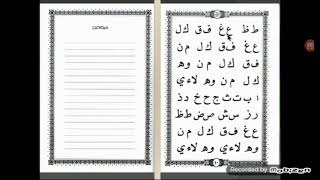 CATATAN
ط ظ ع غ ف ق ك ل
ع غ ف ق ك ل م ن
ف ق ك ل م ن و ه
ك ل م ن و ه لا ء ي
ا ب ت ث ج ح خ د ذ
ر ز س ش ص ض ط ظ
ع غ ف ق ك ل م ن
و ه لا ء ي و ه لا ء ي
Recorded by